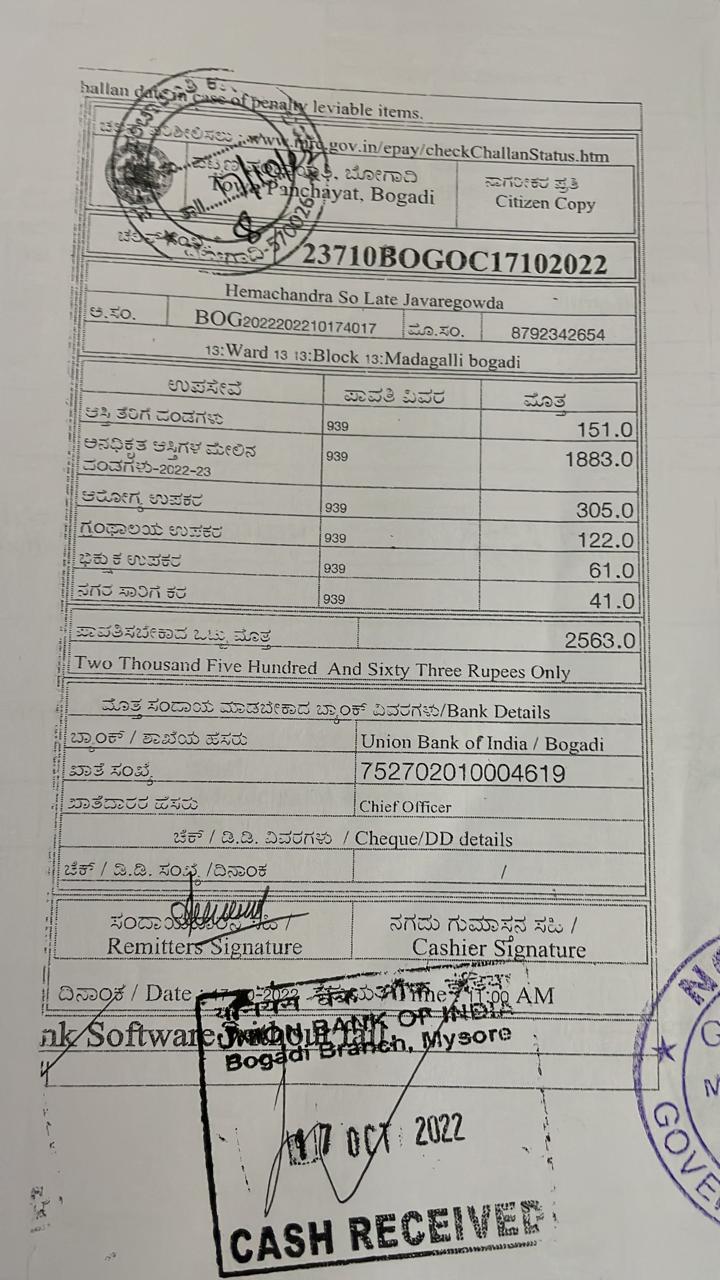 hallan date in case of penalty leviable items.
.gov.in/epay/checkChallanStatus.htm
ಬೋಗಾದಿ
Town Panchayat, Bogadi
ನಾಗರೀಕರ ಪ್ರತಿ
Citizen Copy
23710BOGOC17102022
Hemachandra So Late Javaregowda
ಅ.ಸಂ. BOG2022202210174017 ಮೊ.ಸಂ. 8792342654
13:Ward 13 13:Block 13:Madagalli bogadi
ಉಪಸೇವೆ ಪಾವತಿ ವಿವರ ಮೊತ್ತ
ಆಸ್ತಿ ತೆರಿಗೆ ದಂಡಗಳು 939 151.0
ಅನಧಿಕೃತ ಆಸ್ತಿಗಳ ಮೇಲಿನ 939 1883.0
ದಂಡಗಳು-2022-23
ಆರೋಗ್ಯ ಉಪಕರ 939 305.0
ಗ್ರಂಥಾಲಯ ಉಪಕರ 939 122.0
ಭಿಕ್ಷುಕ ಉಪಕರ 939 61.0
ನಗರ ಸಾರಿಗೆ ಕರ 939 41.0
ಪಾವತಿಸಬೇಕಾದ ಒಟ್ಟು ಮೊತ್ತ 2563.0
Two Thousand Five Hundred And Sixty Three Rupees Only
ಮೊತ್ತ ಸಂದಾಯ ಮಾಡಬೇಕಾದ ಬ್ಯಾಂಕ್ ವಿವರಗಳು/Bank Details
ಬ್ಯಾಂಕ್ / ಶಾಖೆಯ ಹೆಸರು Union Bank of India / Bogadi
ಖಾತೆ ಸಂಖ್ಯೆ 752702010004619
ಖಾತೆದಾರರ ಹೆಸರು Chief Officer
ಚೆಕ್ / ಡಿ.ಡಿ. ವಿವರಗಳು / Cheque/DD details
ಚೆಕ್ / ಡಿ.ಡಿ. ಸಂಖ್ಯೆ /ದಿನಾಂಕ /
ನಗದು ಗುಮಾಸ್ತನ ಸಹಿ /
Remitters Signature Cashier Signature
ದಿನಾಂಕ / Date : 17-10-2022 11:00 AM
nk Software without fail
यूनियन बैंक ऑफ इंडिया
UNION BANK OF INDIA
Bogadi Branch, Mysore
17 OCT 2022
CASH RECEIVED